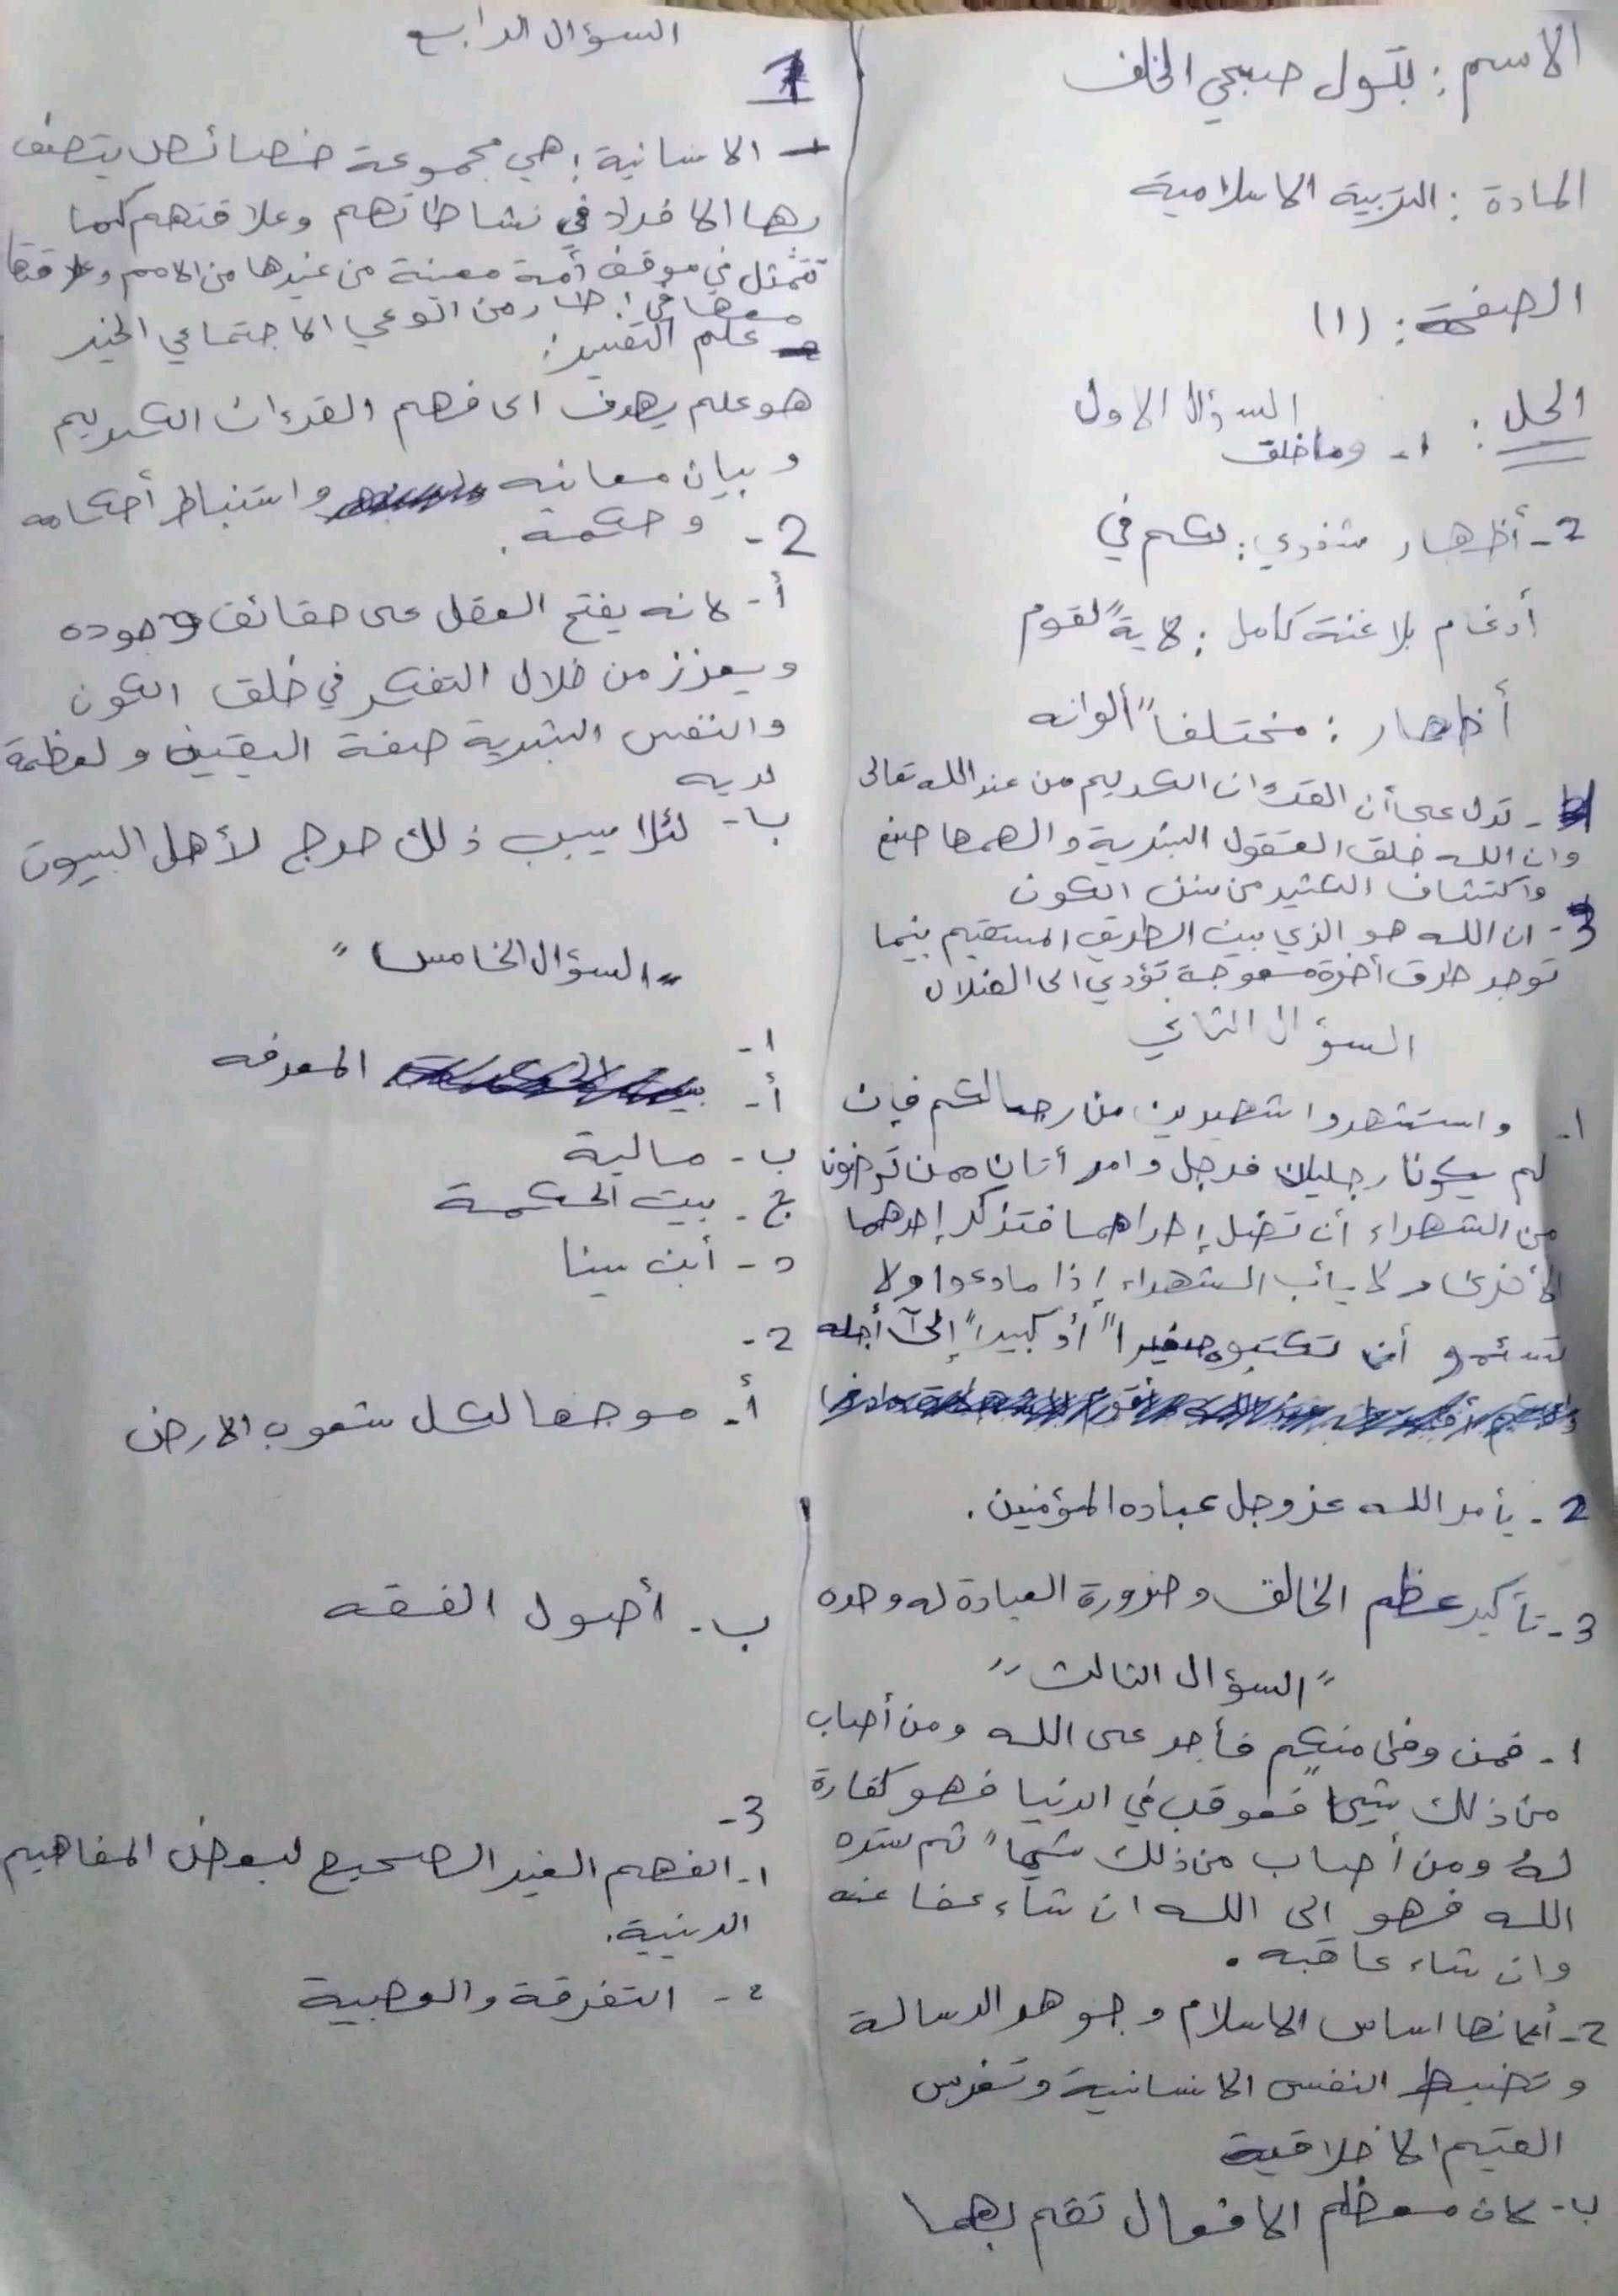 الاسم : بتول صبحي الخلف
المادة : التربية الاسلامية
الصفحة : (١)
الحل : السؤال الاول
١- وما خلق
2- أظهار شفوي : لكم في
أدغام بلا غنة كامل : لاية لقوم
أظهار : مختلفاً ألوانه
- تدل على أن القرءان الكريم من عند الله تعالى
وان الله خلق العقول البشرية والهمها صنع
واكتشاف الكثير من سنن الكون
3- ان الله هو الذي يبين الطريق المستقيم بينما
توجد طرق أخرة معوجة تؤدي الى الضلال
السؤال الثاني
١- واستشهدوا شهيدين من رجالكم فإن
لم يكونا رجلين فرجل وامرأتان ممن ترضون
من الشهداء أن تضل إحداهما فتذكر إحدهما
الأخرى ولا يأب الشهداء إذا ما دعوا ولا
تسئمو أن تكتبوه صغيراً أو كبيراً إلى أجله
2- يأمر الله عز وجل عباده المؤمنين .
3- تأكيد عظم الخالق وضرورة العبادة له وحده
"السؤال الثالث"
١- فمن وفى منكم فأجر على الله ومن أصاب
من ذلك شيئا فعوقب في الدنيا فهو كفارة
له ومن أصاب من ذلك شيئاً ثم ستره
الله فهو الى الله ان شاء عفا عنه
وان شاء عاقبه .
2- أ لانها اساس الاسلام وجوهر الرسالة
وتضبط النفس الانسانية وتغرس
القيم الاخلاقية
ب- لان معظم الافعال تقم بهما
السؤال الرابع
1
- الانسانية : هي مجموعة خصائص يتصف
بها الافراد في نشاطاتهم وعلاقتهم كما
تتمثل في موقف أمة معينة من غيرها من الامم وعلاقتها
معها في إطار من الوعي الاجتماعي الخير
- علم التفسير :
هو علم يهدف الى فهم القرءان الكريم
وبيان معانيه واستنباط أحكامه
وحكمه .
2-
أ- لانه يفتح العقل على حقائق وجوده
ويعزز من خلال التفكر في خلق الكون
والنفس البشرية صفة اليقين ولعظمة
لديه
ب- لئلا يسبب ذلك حرج لأهل البيوت
"السؤال الخامس"
١-
أ- المعرفه
ب- مالية
ج- بيت الحكمة
د- أبن سينا
2-
أ- موجها لكل شعوب الارض
ب- أصول الفقه
3-
١- الفهم الغير الصحيح لبعض المفاهيم
الدينية.
٢- التفرقة والعصبية